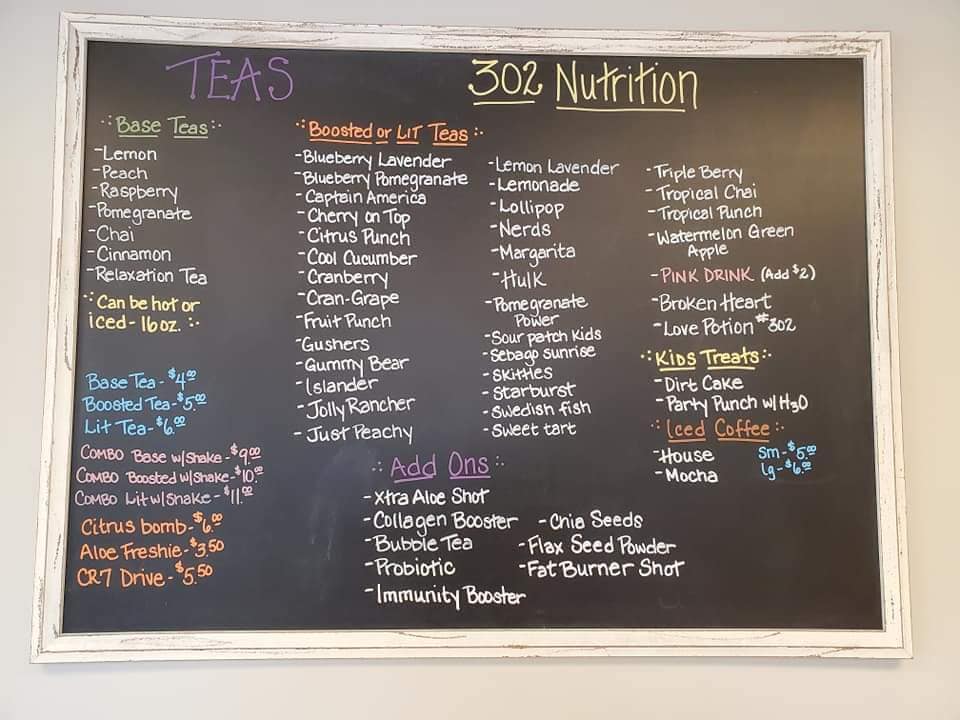 TEAS
302 Nutrition
Base Teas
-Lemon
-Peach
-Raspberry
-Pomegranate
-Chai
-Cinnamon
-Relaxation Tea
Can be hot or
iced - 16 oz.
Base Tea - $4.00
Boosted Tea - $5.00
Lit Tea - $6.00
COMBO Base w/Shake - $9.00
COMBO Boosted w/Shake - $10.00
COMBO Lit w/Shake - $11.00
Citrus bomb - $6.00
Aloe Freshie - $3.50
CR7 Drive - $5.50
Boosted or LIT Teas
-Blueberry Lavender
-Blueberry Pomegranate
-Captain America
-Cherry on Top
-Citrus Punch
-Cool Cucumber
-Cranberry
-Cran-Grape
-Fruit Punch
-Gushers
-Gummy Bear
-Islander
-Jolly Rancher
-Just Peachy
-Lemon Lavender
-Lemonade
-Lollipop
-Nerds
-Margarita
-Hulk
-Pomegranate
Power
-Sour patch Kids
-Sebago sunrise
-Skittles
-Starburst
-Swedish fish
-Sweet tart
-Triple Berry
-Tropical Chai
-Tropical Punch
-Watermelon Green
Apple
-PINK DRINK (Add $2)
-Broken Heart
-Love Potion #302
Kids Treats
-Dirt Cake
-Party Punch w/ H3O
Iced Coffee
-House
-Mocha
sm - $5.00
lg - $6.00
Add Ons
-Xtra Aloe Shot
-Collagen Booster
-Bubble Tea
-Probiotic
-Immunity Booster
-Chia Seeds
-Flax Seed Powder
-Fat Burner Shot